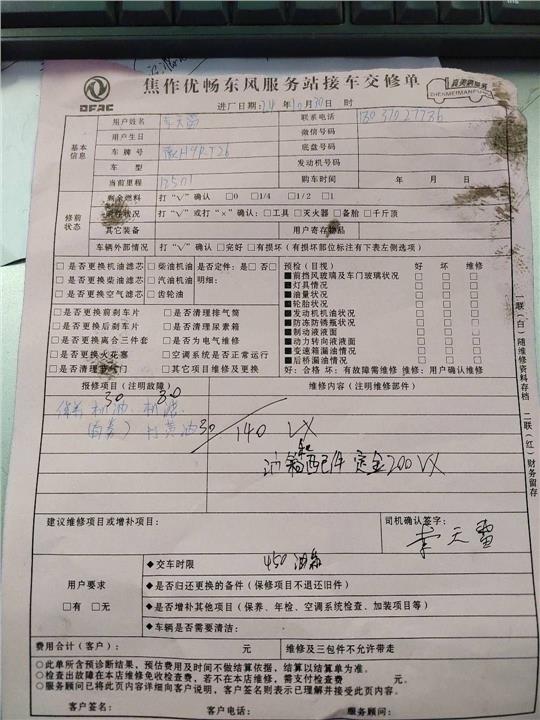 DFAC
焦作优畅东风服务站接车交修单
真美满服务
ZHENMEIMANFUWU
进厂日期：24 年 10 月 30 日 时
基本信息
用户姓名 李天雷 联系电话
用户生日 微信号码
车牌号 底盘号码
车型 发动机号码
当前里程 购车时间 年 月 日
修前状态
剩余燃料 打“√”确认 □0 □1/4 □1/2 □1
附存状况 打“√”或打“×”确认：□工具 □灭火器 □备胎 □千斤顶
其它装备 用户寄存物品
车辆外部情况 打“√”确认 □完好 □有损坏（有损坏部位标注有下表左侧选项）
□是否更换机油滤芯 □柴油机油 是否定件：是□否□
□是否更换柴油滤芯 □汽油机油 明细：
□是否更换空气滤芯 □齿轮油
□是否更换前刹车片 □是否清理排气筒
□是否更换后刹车片 □是否清理尿素箱
□是否更换离合三件套 □是否为电气维修
□是否更换火花塞 □空调系统是否正常运行
□是否清理节气门 □其它项目维修及更换
预检（目视） 好 坏 维修
■前挡风玻璃及车门玻璃状况 □ □ □
■灯具情况 □ □ □
■油量状况 □ □ □
■轮胎状况 □ □ □
■发动机机油状况 □ □ □
■防冻防锈瓶状况 □ □ □
■制动液液面 □ □ □
■动力转向液液面 □ □ □
■变速箱漏油情况 □ □ □
■后桥漏油情况 □ □ □
好：合格 坏：有故障需维修 维修：用户确认维修
报修项目（注明故障） 维修内容（注明维修部件）
30 30
保养 机油、机滤、
打黄油 30 140 VX
油箱 配件 定金200 VX
建议维修项目或增补项目：
司机确认签字：
李天雷
用户要求
□有 □无
◆交车时限 450 油箱
◆是否归还更换的备件（保修项目不退还旧件）
◆是否增补其他项目（保养、年检、空调系统检查、加装项目等）
◆车辆是否需要清洁：
费用合计（客户）： 元 维修及三包件不允许带走
○此单所含预诊断结果，预估费用及时间不做结算依据，结算以结算单为准。
○检查出故障在本店维修免收检查费，若不在本店维修，需支付检查费 元。
○服务顾问已将此页内容详细向客户说明，客户签名则表示已理解并接受此页内容。
客户签名： 客户电话： 服务顾问：
一联（白）随维修资料存档 二联（红）财务留存